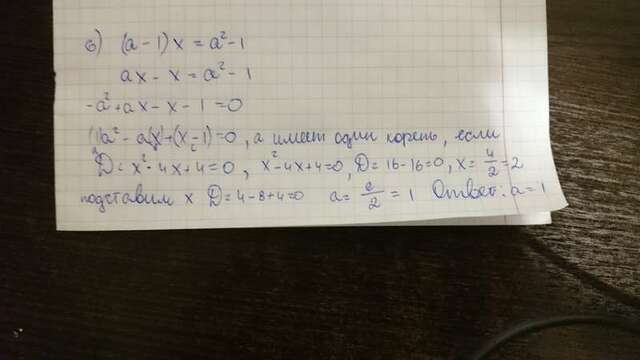 б) (a - 1) x = a² - 1
ax - x = a² - 1
-a² + ax - x - 1 = 0
(1)a² - a(x) + (x - 1) = 0, a имеет один корень, если
D = x² - 4x + 4 = 0, x² - 4x + 4 = 0, D = 16 - 16 = 0, x = 4/2 = 2
подставим x D = 4 - 8 + 4 = 0 a = 2/2 = 1 Ответ: a = 1